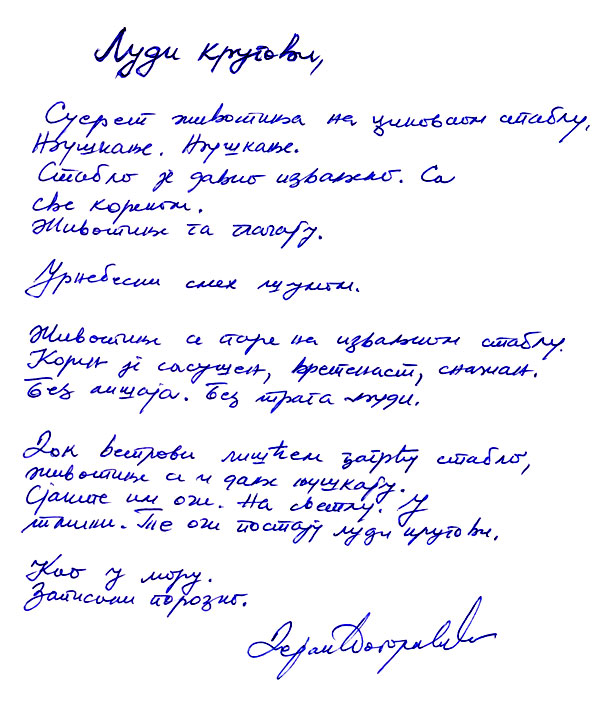 Луди кругови,
Сусрет животиња на циновском стаблу.
Њушкање. Њушкање.
Стабло је давно изваљено. Са
све кореном.
Животиње га лагају.
Урнебесни смех шумом.
Животиње се паре на изваљеном стаблу.
Корен је сасушен, вретенаст, снажан.
Без лишаја. Без трага људи.
Док ветрови лишћем затрћу стабло,
животиње се и даље њушкају.
Сјакте им очи. На светлу. У
тмини. Те очи постају луди кругови.
Као у мору.
Записани порозно.